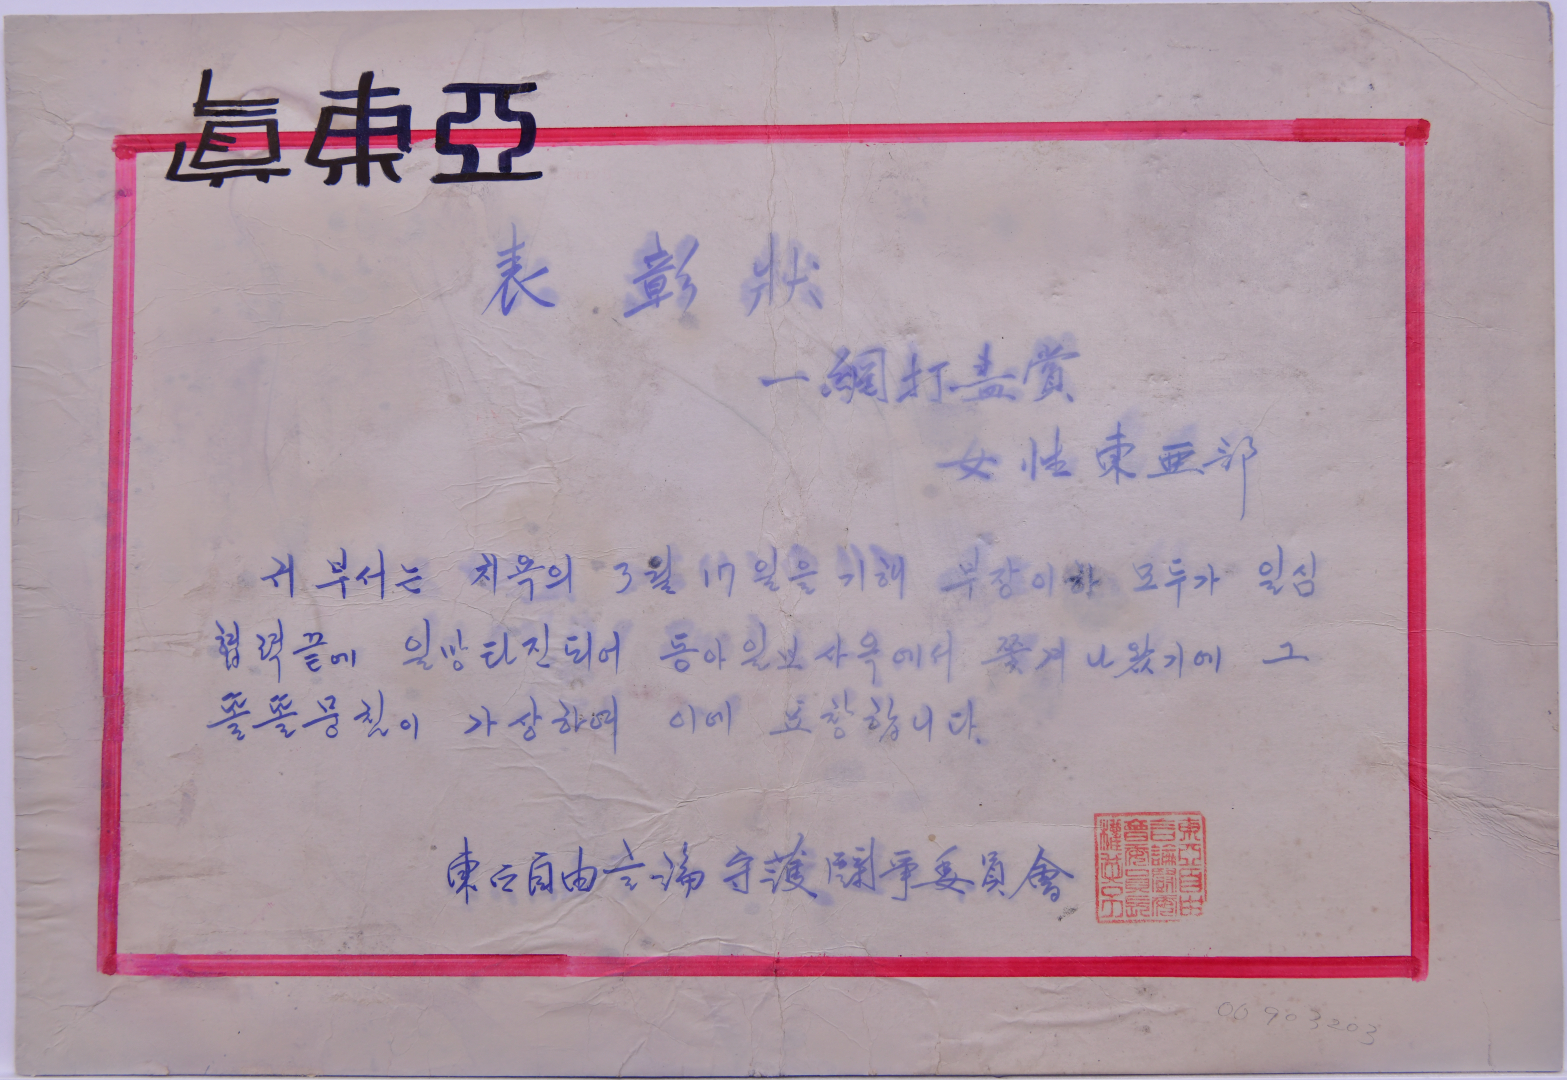 眞東亞
表彰狀
一網打盡賞
女性東亜部
귀 부서는 치욕의 3월 17일을 기해 부장이하 모두가 일심
협력끝에 일망타진되어 동아일보사옥에서 쫓겨나왔기에 그
똘똘뭉침이 가상하여 이에 표창합니다.
東亞自由言論守護鬪爭委員會
00903203